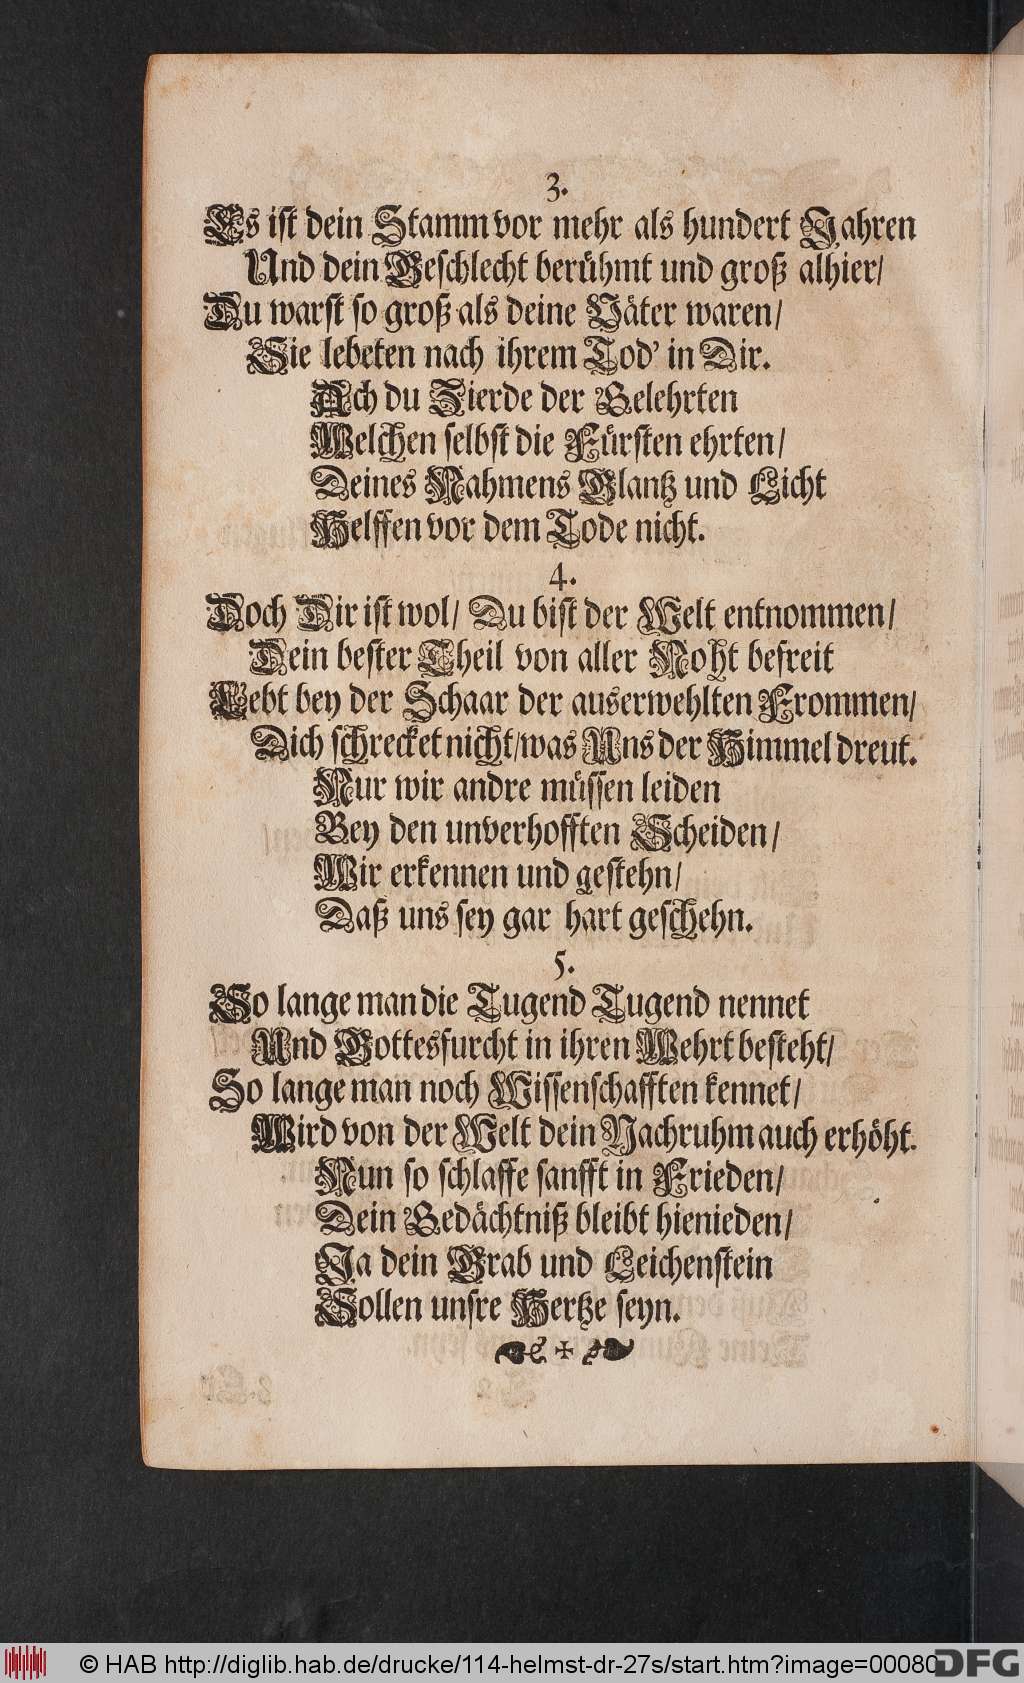 3.
Es ist dein Stamm vor mehr als hundert Jahren
Und dein Geschlecht berühmt und groß alhier/
Du warst so groß als deine Väter waren/
Sie lebeten nach ihrem Tod' in Dir.
Ach du Zierde der Gelehrten
Welchen selbst die Fürsten ehrten/
Deines Nahmens Glantz und Licht
Helffen vor dem Tode nicht.
4.
Doch Dir ist wol/ Du bist der Welt entnommen/
Dein bester Theil von aller Noht befreit
Lebt bey der Schaar der auserwehlten Frommen/
Dich schrecket nicht/ was Uns der Himmel dreut.
Nur wir andre müssen leiden
Bey den unverhofften Scheiden/
Wir erkennen und gestehn/
Daß uns sey gar hart geschehn.
5.
So lange man die Tugend Tugend nennet
Und Gottesfurcht in ihren Wehrt besteht/
So lange man noch Wissenschafften kennet/
Wird von der Welt dein Nachruhm auch erhöht.
Nun so schlaffe sanfft in Frieden/
Dein Gedächtniß bleibt hienieden/
Ja dein Grab und Leichenstein
Sollen unsre Hertze seyn.
© HAB http://diglib.hab.de/drucke/114-helmst-dr-27s/start.htm?image=00080
DFG